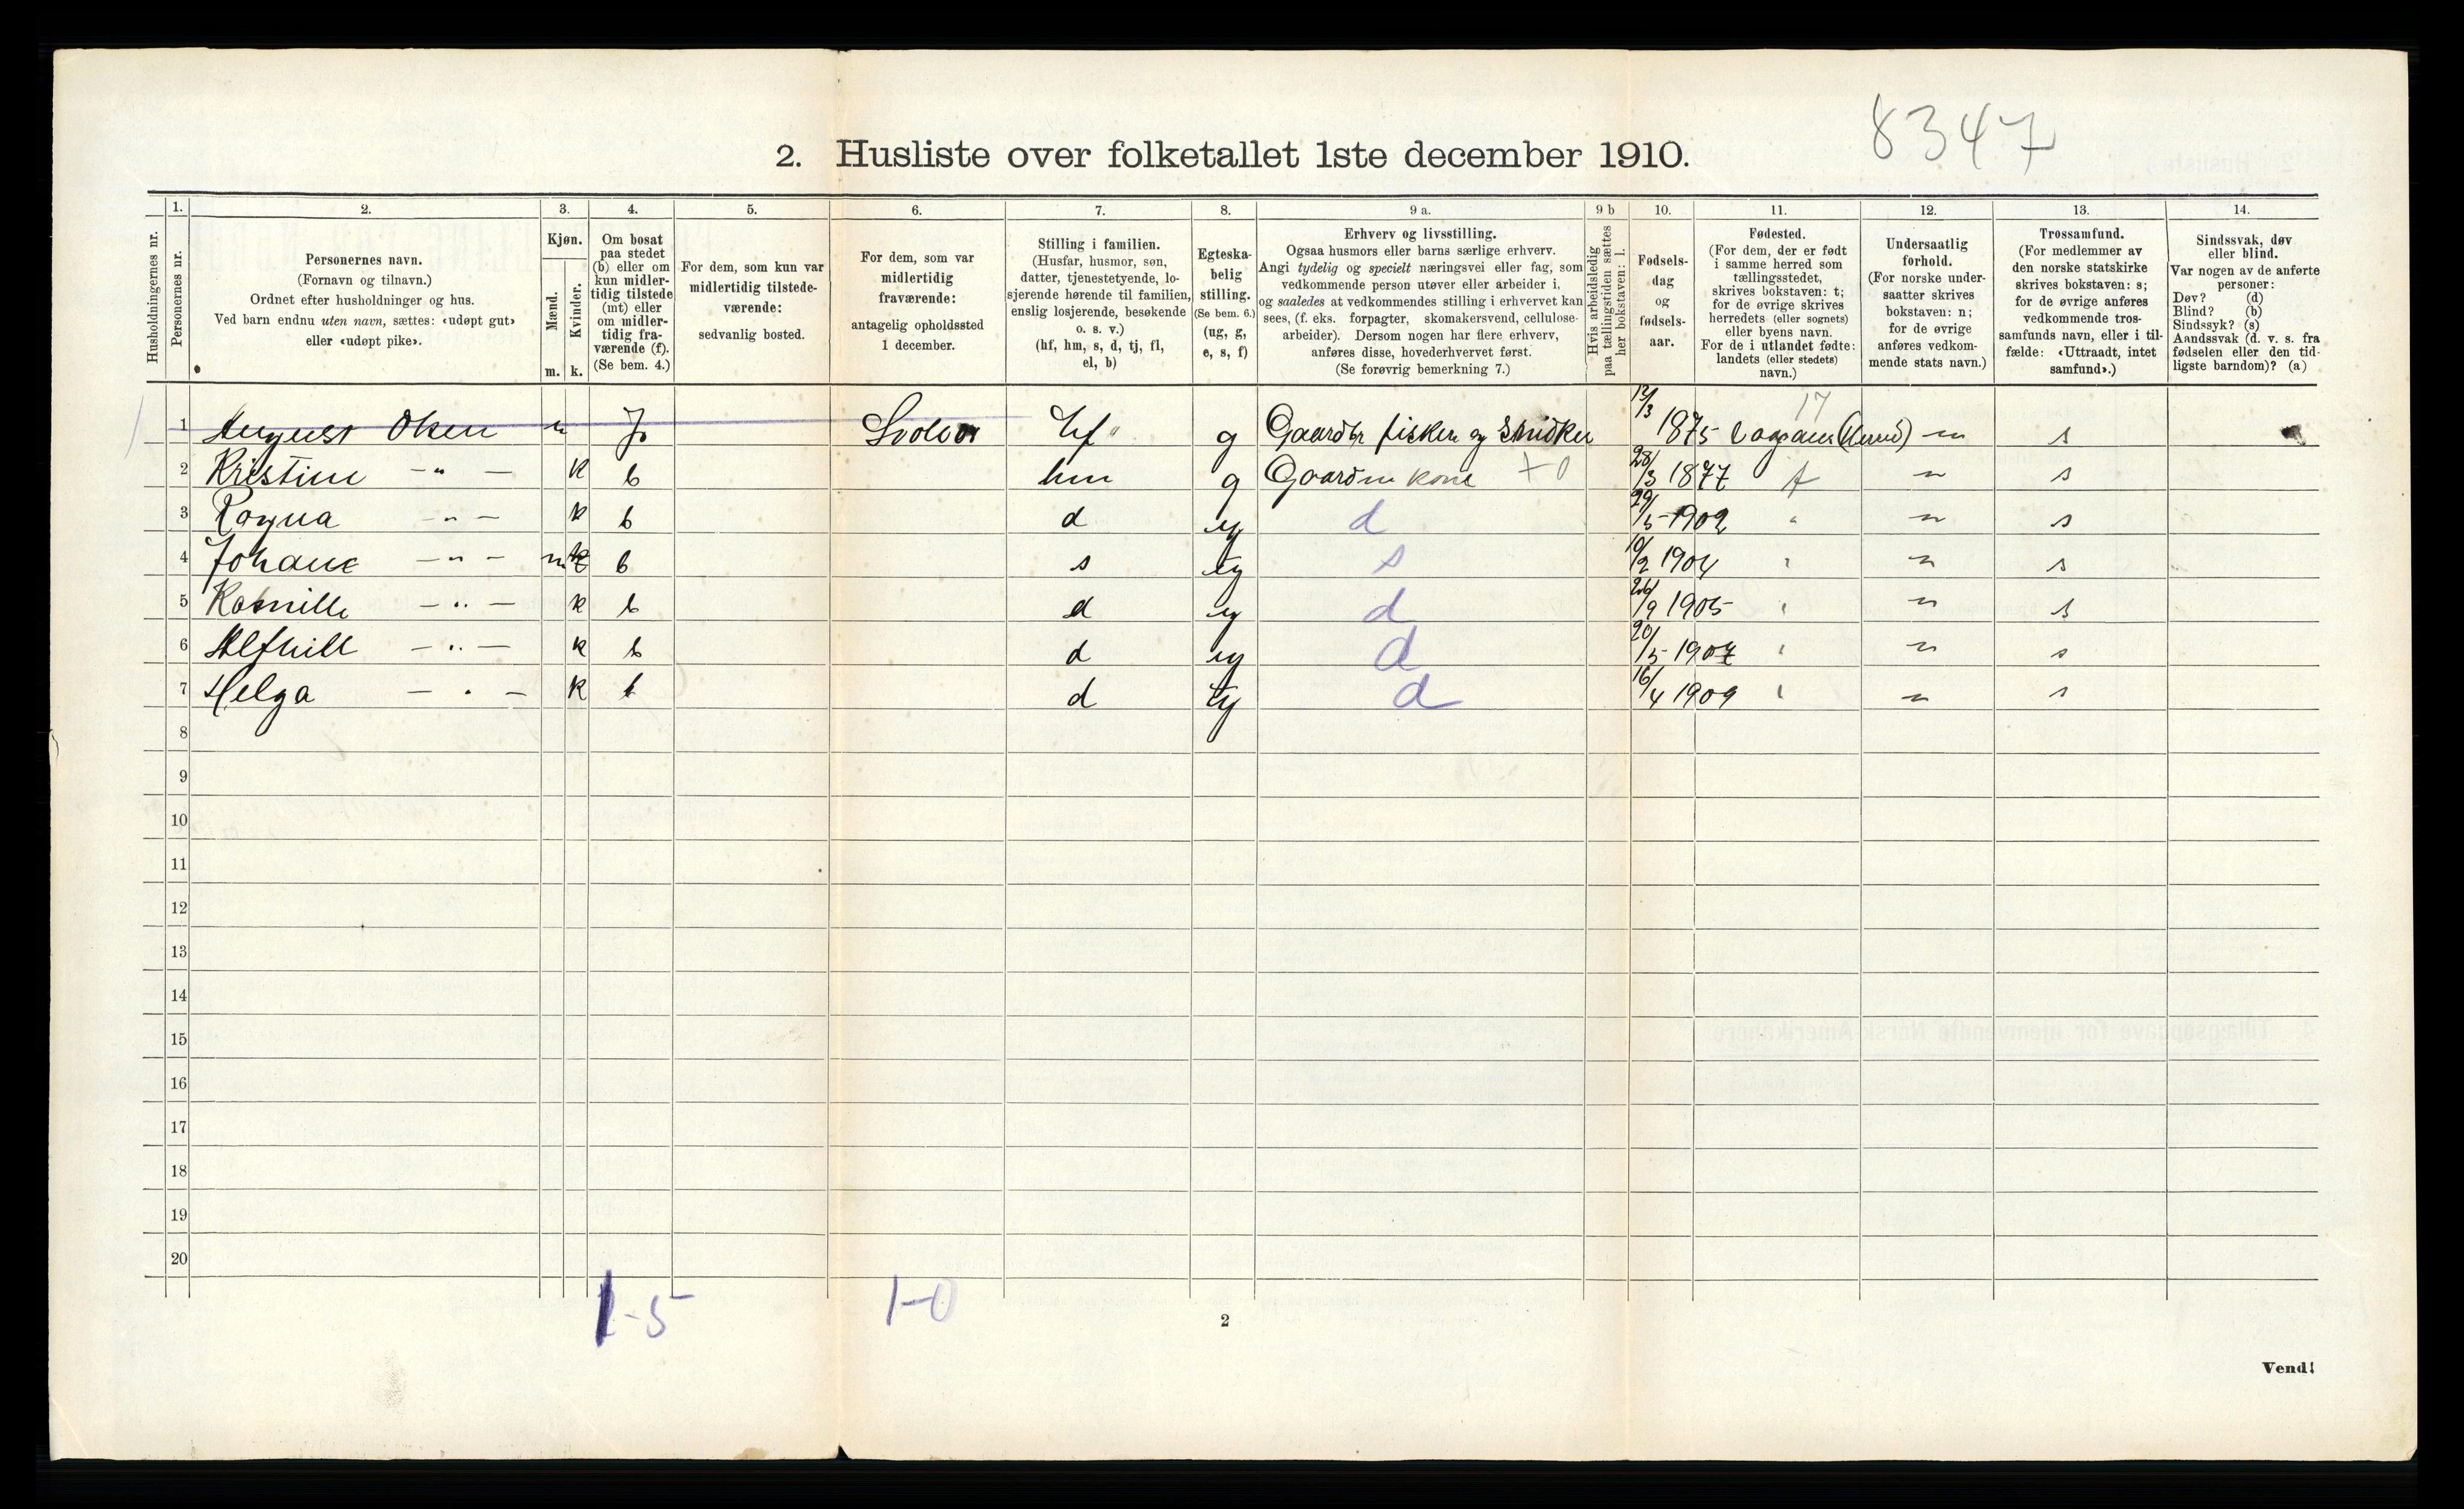 8347
2. Husliste over folketallet 1ste december 1910.
Husholdningernes nr.
1.
Personernes nr.
2.
Personernes navn.
(Fornavn og tilnavn.)
Ordnet efter husholdninger og hus.
Ved barn endnu uten navn, sættes: «udøpt gut»
eller «udøpt pike».
3.
Kjøn.
Mænd.
Kvinder.
m. k.
4.
Om bosat
paa stedet
(b) eller om
kun midler-
tidig tilstede
(mt) eller
om midler-
tidig fra-
værende (f).
(Se bem. 4.)
5.
For dem, som kun var
midlertidig tilstede-
værende:
sedvanlig bosted.
6.
For dem, som var
midlertidig
fraværende:
antagelig opholdssted
1 december.
7.
Stilling i familien.
(Husfar, husmor, søn,
datter, tjenestetyende, lo-
sjerende hørende til familien,
enslig losjerende, besøkende
o. s. v.)
(hf, hm, s, d, tj, fl,
el, b)
8.
Egteska-
belig
stilling.
(Se bem. 6.)
(ug, g,
e, s, f)
9 a.
Erhverv og livsstilling.
Ogsaa husmors eller barns særlige erhverv.
Angi tydelig og specielt næringsvei eller fag, som
vedkommende person utøver eller arbeider i,
og saaledes at vedkommendes stilling i erhvervet kan
sees, (f. eks. forpagter, skomakersvend, cellulose-
arbeider). Dersom nogen har flere erhverv,
anføres disse, hovederhvervet først.
(Se forøvrig bemerkning 7.)
9 b
Hvis arbeidsledig
paa tællingstiden sættes
her bokstaven: l.
10.
Fødsels-
dag
og
fødsels-
aar.
11.
Fødested.
(For dem, der er født
i samme herred som
tællingsstedet,
skrives bokstaven: t;
for de øvrige skrives
herredets (eller sognets)
eller byens navn.
For de i utlandet fødte:
landets (eller stedets)
navn.)
12.
Undersaatlig
forhold.
(For norske under-
saatter skrives
bokstaven: n;
for de øvrige
anføres vedkom-
mende stats navn.)
13.
Trossamfund.
(For medlemmer av
den norske statskirke
skrives bokstaven: s;
for de øvrige anføres
vedkommende tros-
samfunds navn, eller i til-
fælde: «Uttraadt, intet
samfund».)
14.
Sindssvak, døv
eller blind.
Var nogen av de anførte
personer:
Døv? (d)
Blind? (b)
Sindssyk? (s)
Aandssvak (d. v. s. fra
fødselen eller den tid-
ligste barndom)? (a)
17
1 August Olsen m f Svolvær hf g Gaardbr fisker og Snidker 12/3 1875 n s
2 Kristine -"- k b hm g Gaardm kone +0 28/3 1877 t n s
3 Ragna -"- k b d ug d 29/5 1902 " n s
4 Johane -"- m k b s ug s 10/2 1904 " n s
5 Kamille -"- k b d ug d 26/9 1905 " n s
6 Alfhild -"- k b d ug d 20/5 1907 " n s
7 Helga -"- k b d ug d 16/4 1909 " n s
8
9
10
11
12
13
14
15
16
17
18
19
20
1-5
1-0
2
Vend!